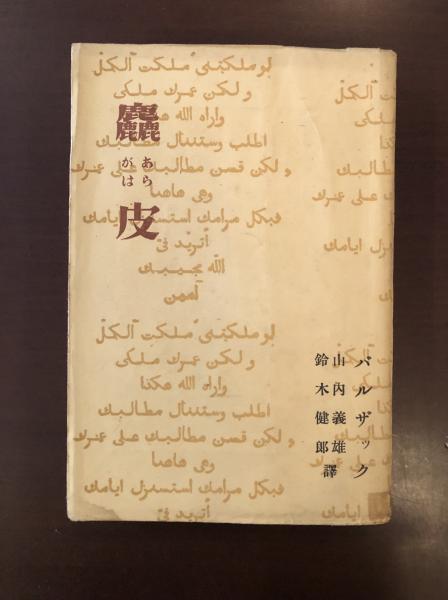 麤皮
あら
がは
لو ملكتنى ملكت آلكلّ
و لكن عمرك ملكى
واراد الله هكذا
اطلب وستننال مطالبك
و لكن قسن مطالبك على عمرك
وهى هاهنا
فبكل مرامك استسنزل ايامك
أتريد فىّ
الله مجيبك
آمين
لو ملكتنى ملكت آلكلّ
و لكن عمرك ملكى
واراد الله هكذا
اطلب وستننال مطالبك
و لكن قسن مطالبك على عمرك
وهى هاهنا
فبكل مرامك استسنزل ايامك
أتريد فىّ
バルザック
山内義雄
鈴木健郎 譯